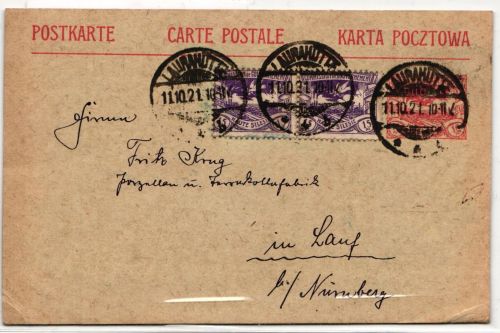 POSTKARTE CARTE POSTALE KARTA POCZTOWA
LAURAHÜTTE
11.10.21. 10-11V.
LAURAHÜTTE
11.10.21. 10-11V.
LAURAHÜTTE
11.10.21. 10-11V.
15
15
Firma
Fritz Krug
Porzellan u. Terrakottafabrik
in Lauf
b/ Nürnberg